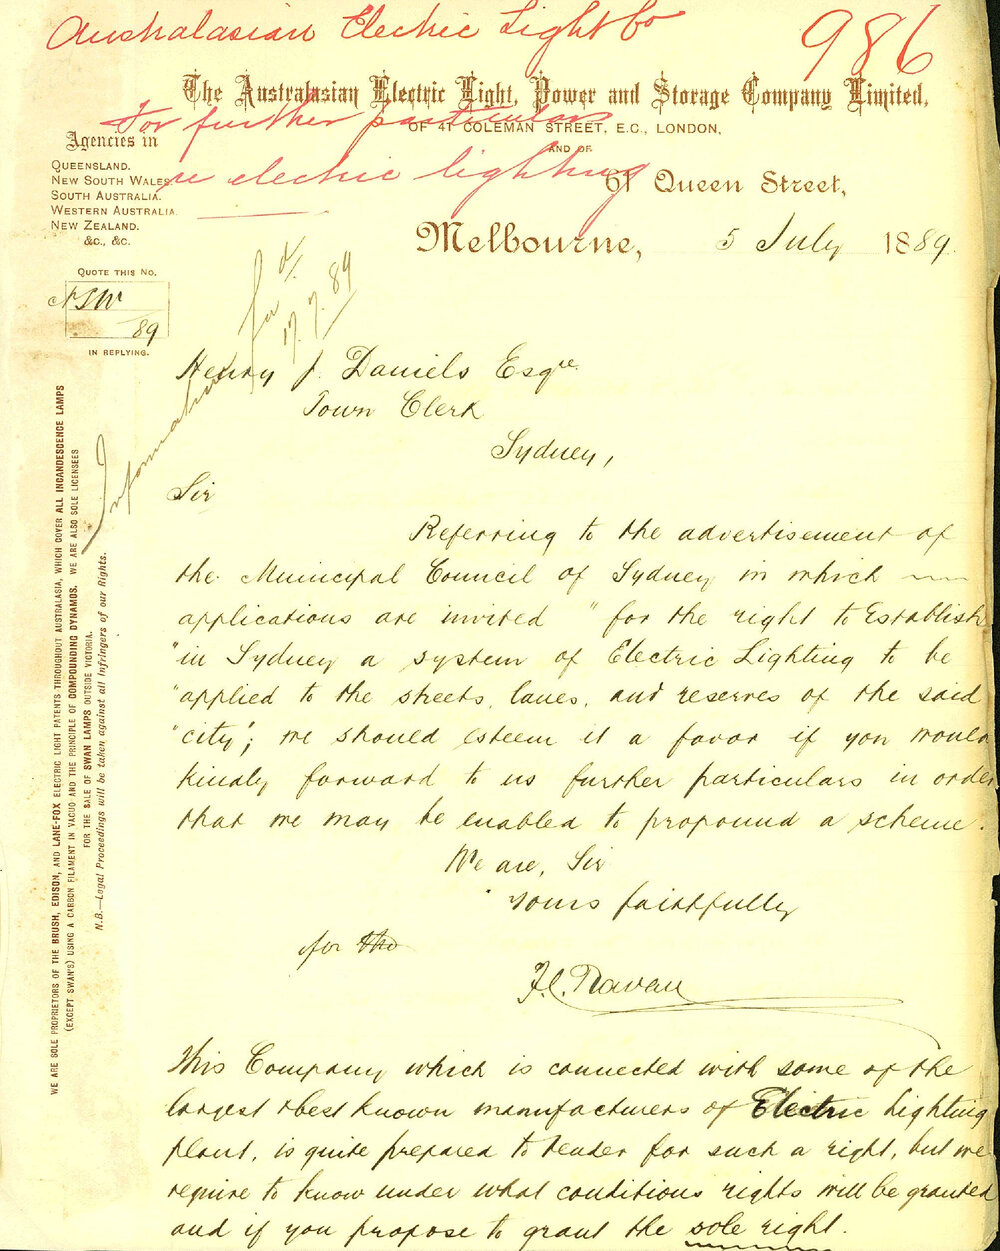 Australasian Electric Light Co
986
The Australasian Electric Light, Power and Storage Company Limited,
For further particulars
OF 41 COLEMAN STREET, E.C., LONDON,
AND OF
re electric lighting
61 Queen Street,
Melbourne, 5 July 1889.
Agencies in
QUEENSLAND.
NEW SOUTH WALES.
SOUTH AUSTRALIA.
WESTERN AUSTRALIA.
NEW ZEALAND.
&C., &C.
QUOTE THIS NO.
NSW
/89
IN REPLYING.
Information for
17.7.89
Henry J. Daniels Esqre.
Town Clerk
Sydney,
Sir
Referring to the advertisement of
the Municipal Council of Sydney in which
applications are invited "for the right to Establish
"in Sydney a system of Electric Lighting to be
"applied to the streets, lanes, and reserves of the said
"city"; we should esteem it a favor if you would
kindly forward to us further particulars in order
that we may be enabled to propound a scheme.
We are, Sir
Yours faithfully
for the
This Company which is connected with some of the
largest & best known manufacturers of Electric Lighting
plant, is quite prepared to tender for such a right, but we
require to know under what conditions rights will be granted
and if you propose to grant the sole right.
WE ARE SOLE PROPRIETORS OF THE BRUSH, EDISON, AND LANE-FOX ELECTRIC LIGHT PATENTS THROUGHOUT AUSTRALASIA, WHICH COVER ALL INCANDESCENCE LAMPS
(EXCEPT SWAN'S) USING A CARBON FILAMENT IN VACUO AND THE PRINCIPLE OF COMPOUNDING DYNAMOS. WE ARE ALSO SOLE LICENSEES
FOR THE SALE OF SWAN LAMPS OUTSIDE VICTORIA.
N.B.—Legal Proceedings will be taken against all Infringers of our Rights.